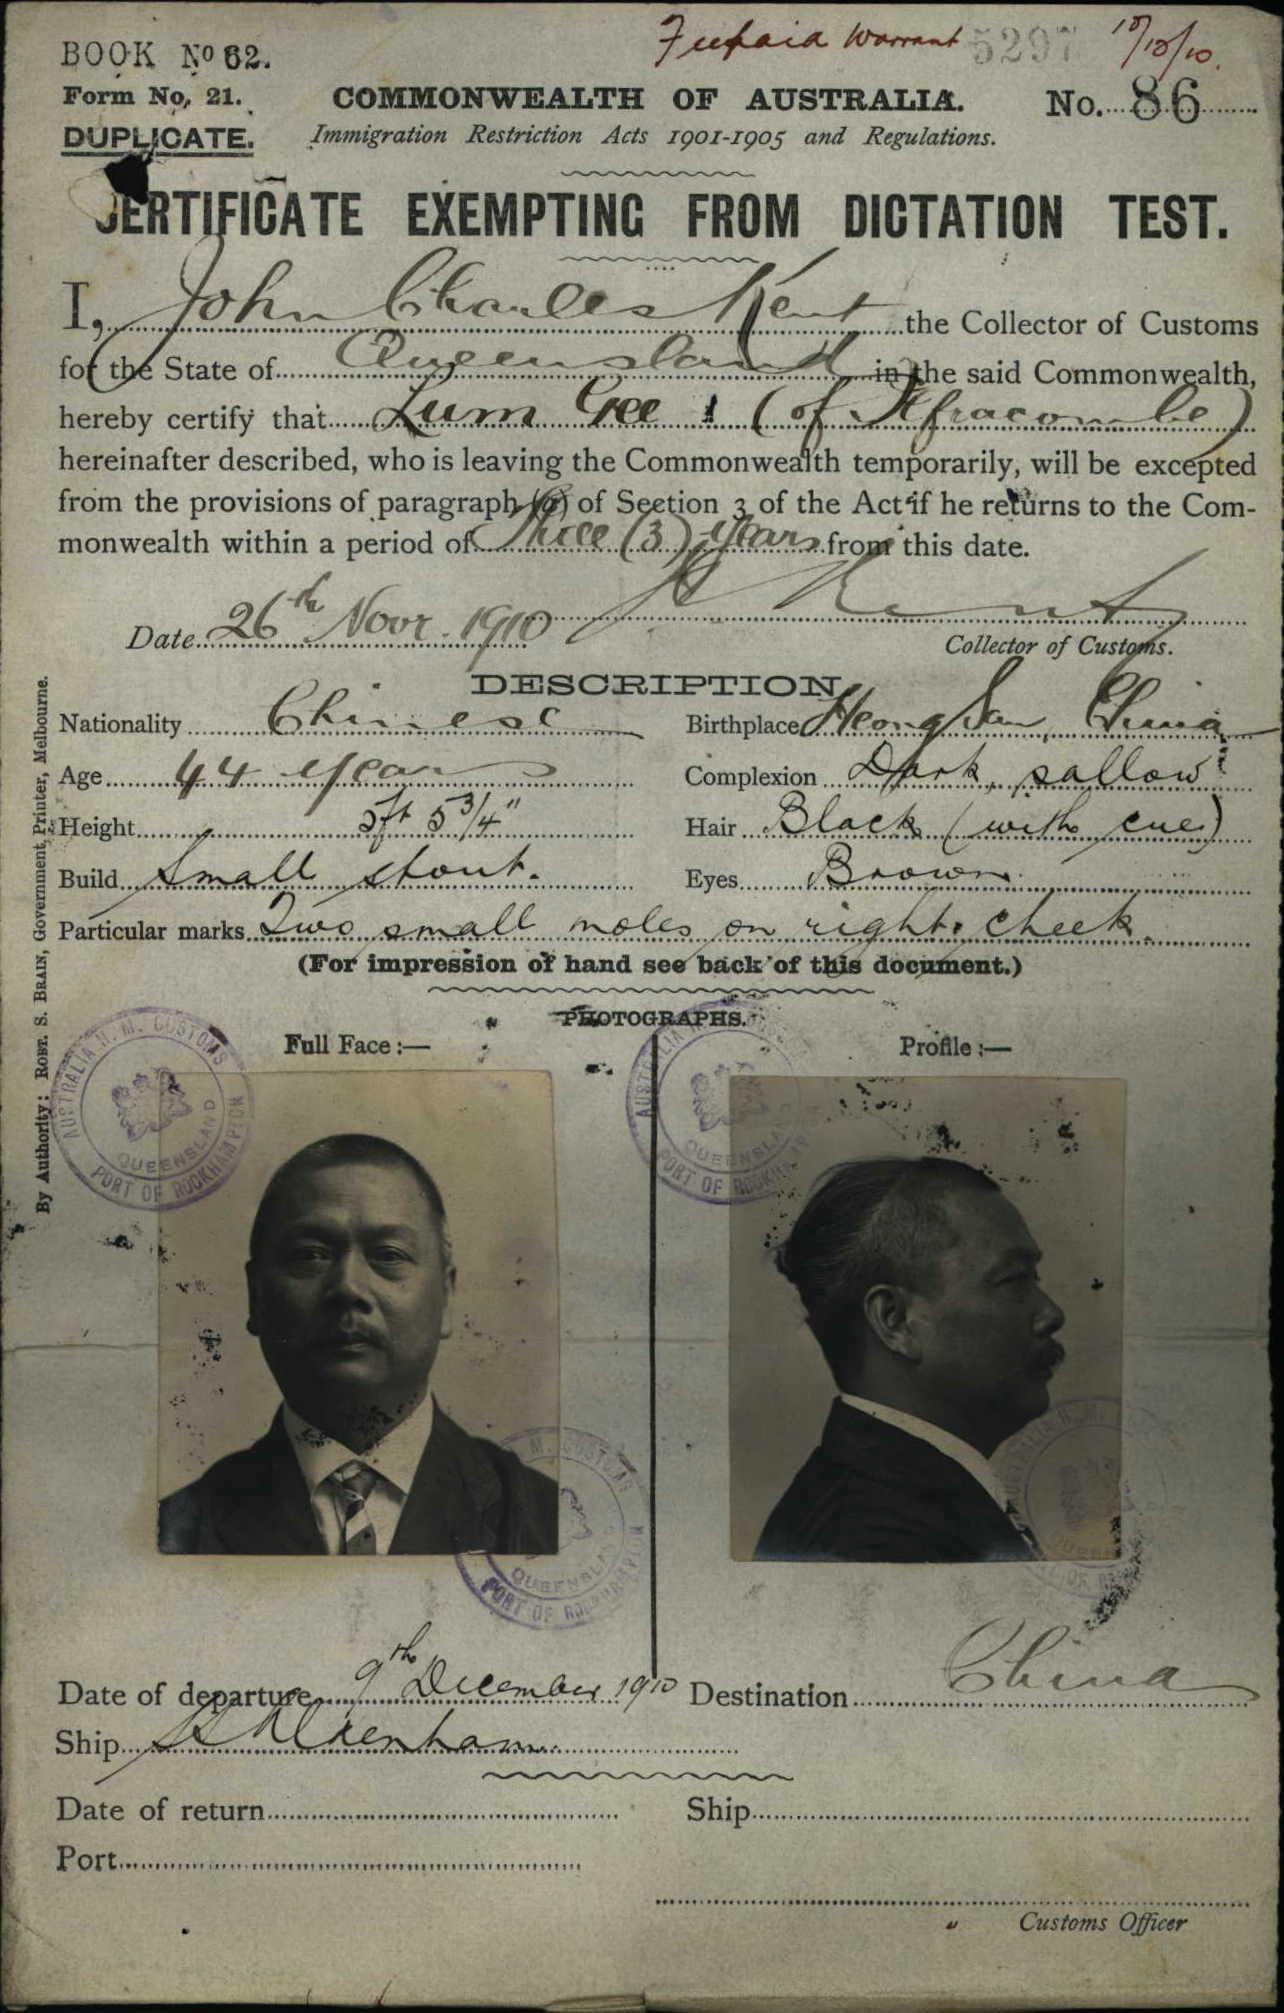 Prepaid Warrant 5297 10/12/10.
BOOK No 62.
Form No. 21. COMMONWEALTH OF AUSTRALIA. No. 86
DUPLICATE. Immigration Restriction Acts 1901-1905 and Regulations.
CERTIFICATE EXEMPTING FROM DICTATION TEST.
I, John Charles Kent the Collector of Customs
for the State of Queensland in the said Commonwealth,
hereby certify that Lum Gee (of Ilfracombe)
hereinafter described, who is leaving the Commonwealth temporarily, will be excepted
from the provisions of paragraph (a) of Section 3 of the Act if he returns to the Com-
monwealth within a period of Three (3) years from this date.
Kent
Date 26th Novr. 1910 Collector of Customs.
DESCRIPTION
Nationality Chinese Birthplace Heong San, China
Age 44 years Complexion Dark, sallow
Height 5ft 5 3/4" Hair Black (with cue)
Build Small stout. Eyes Brown
Particular marks Two small moles on right cheek.
(For impression of hand see back of this document.)
PHOTOGRAPHS.
Full Face :— Profile :—
AUSTRALIA H. M. CUSTOMS QUEENSLAND PORT OF ROCKHAMPTON
Date of departure 9th December 1910 Destination China
Ship SS Aldenham
Date of return Ship
Port
Customs Officer
By Authority: ROBT. S. BRAIN, Government Printer, Melbourne.